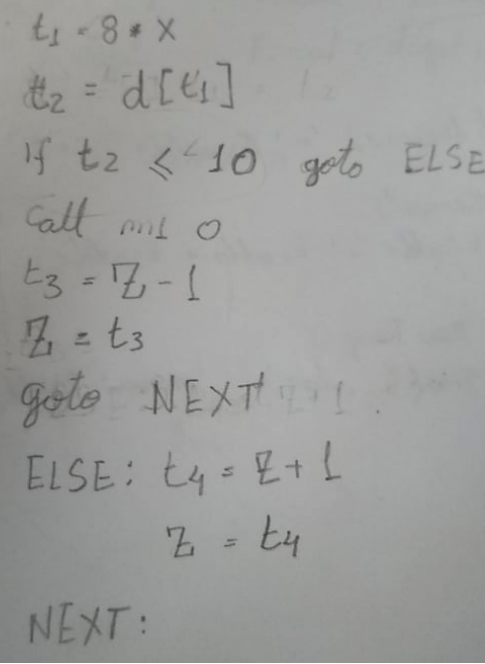 t1 = 8 * X
t2 = d[t1]
If t2 ≤ 10 goto ELSE
Call 0
t3 = Z - 1
Z = t3
goto NEXT
ELSE: t4 = Z + 1
Z = t4
NEXT: